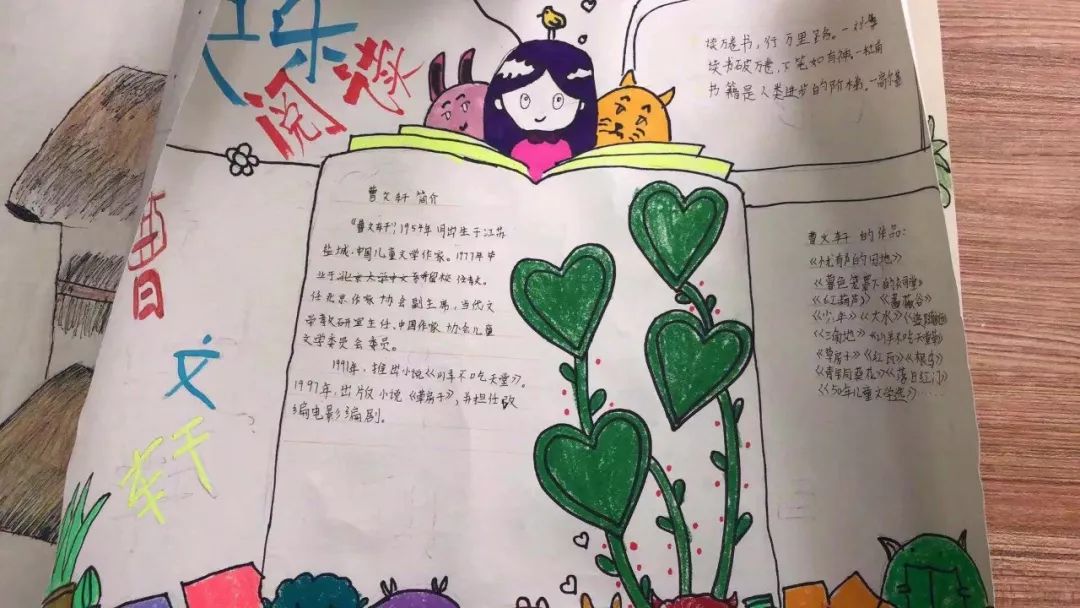 乐
阅读
曹
文
轩
读万卷书，行万里路。
读书破万卷，下笔如有神。
书籍是人类进步的阶梯。
曹文轩 简介
《曹文轩》，1954年 出生于江苏
盐城，中国儿童文学作家。1977年毕
业于北京大学中文 留校 任教。
任北京作家协会副主席，当代文
学教研室主任，中国作家协会儿童
文学委员会委员。
1991年，推出小说《山羊不吃天堂》。
1997年，出版小说《草房子》，并担任改
编电影编剧。
曹文轩 的作品：
《忧声的田地》
《暮色笼罩下的祠堂》
《红葫芦》《蔷薇谷》
《少年》《大水》
《三角地》《山羊不吃天堂草》
《草房子》《红瓦》《根鸟》
《青铜葵花》《落日红门》
《50年儿童文学选》......